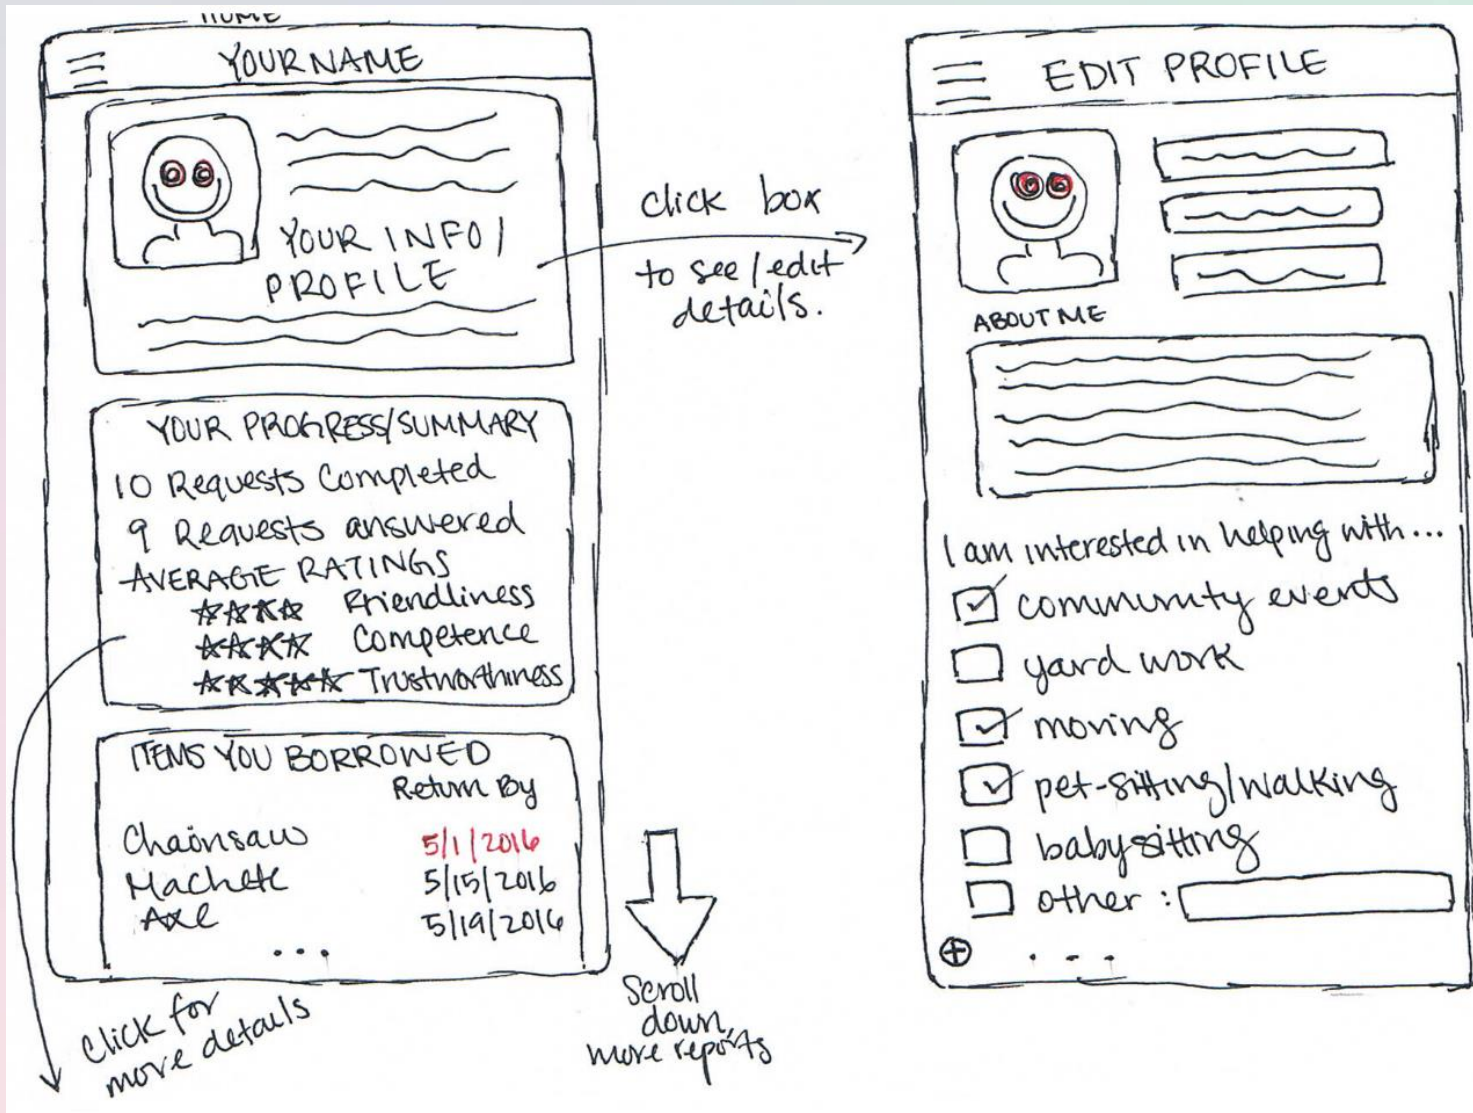 HOME
YOUR NAME
YOUR INFO/
PROFILE
YOUR PROGRESS/SUMMARY
10 Requests Completed
9 Requests answered
AVERAGE RATINGS
Friendliness
Competence
Trustworthiness
ITEMS YOU BORROWED
Return By
Chaonsaw 5/1/2016
Machete 5/15/2016
Axe 5/19/2016
...
Click for
more details
Scroll
down,
more reports
click box
to see/edit
details.
EDIT PROFILE
ABOUT ME
I am interested in helping with...
community events
yard work
moving
pet-sitting/walking
babysitting
other :
...